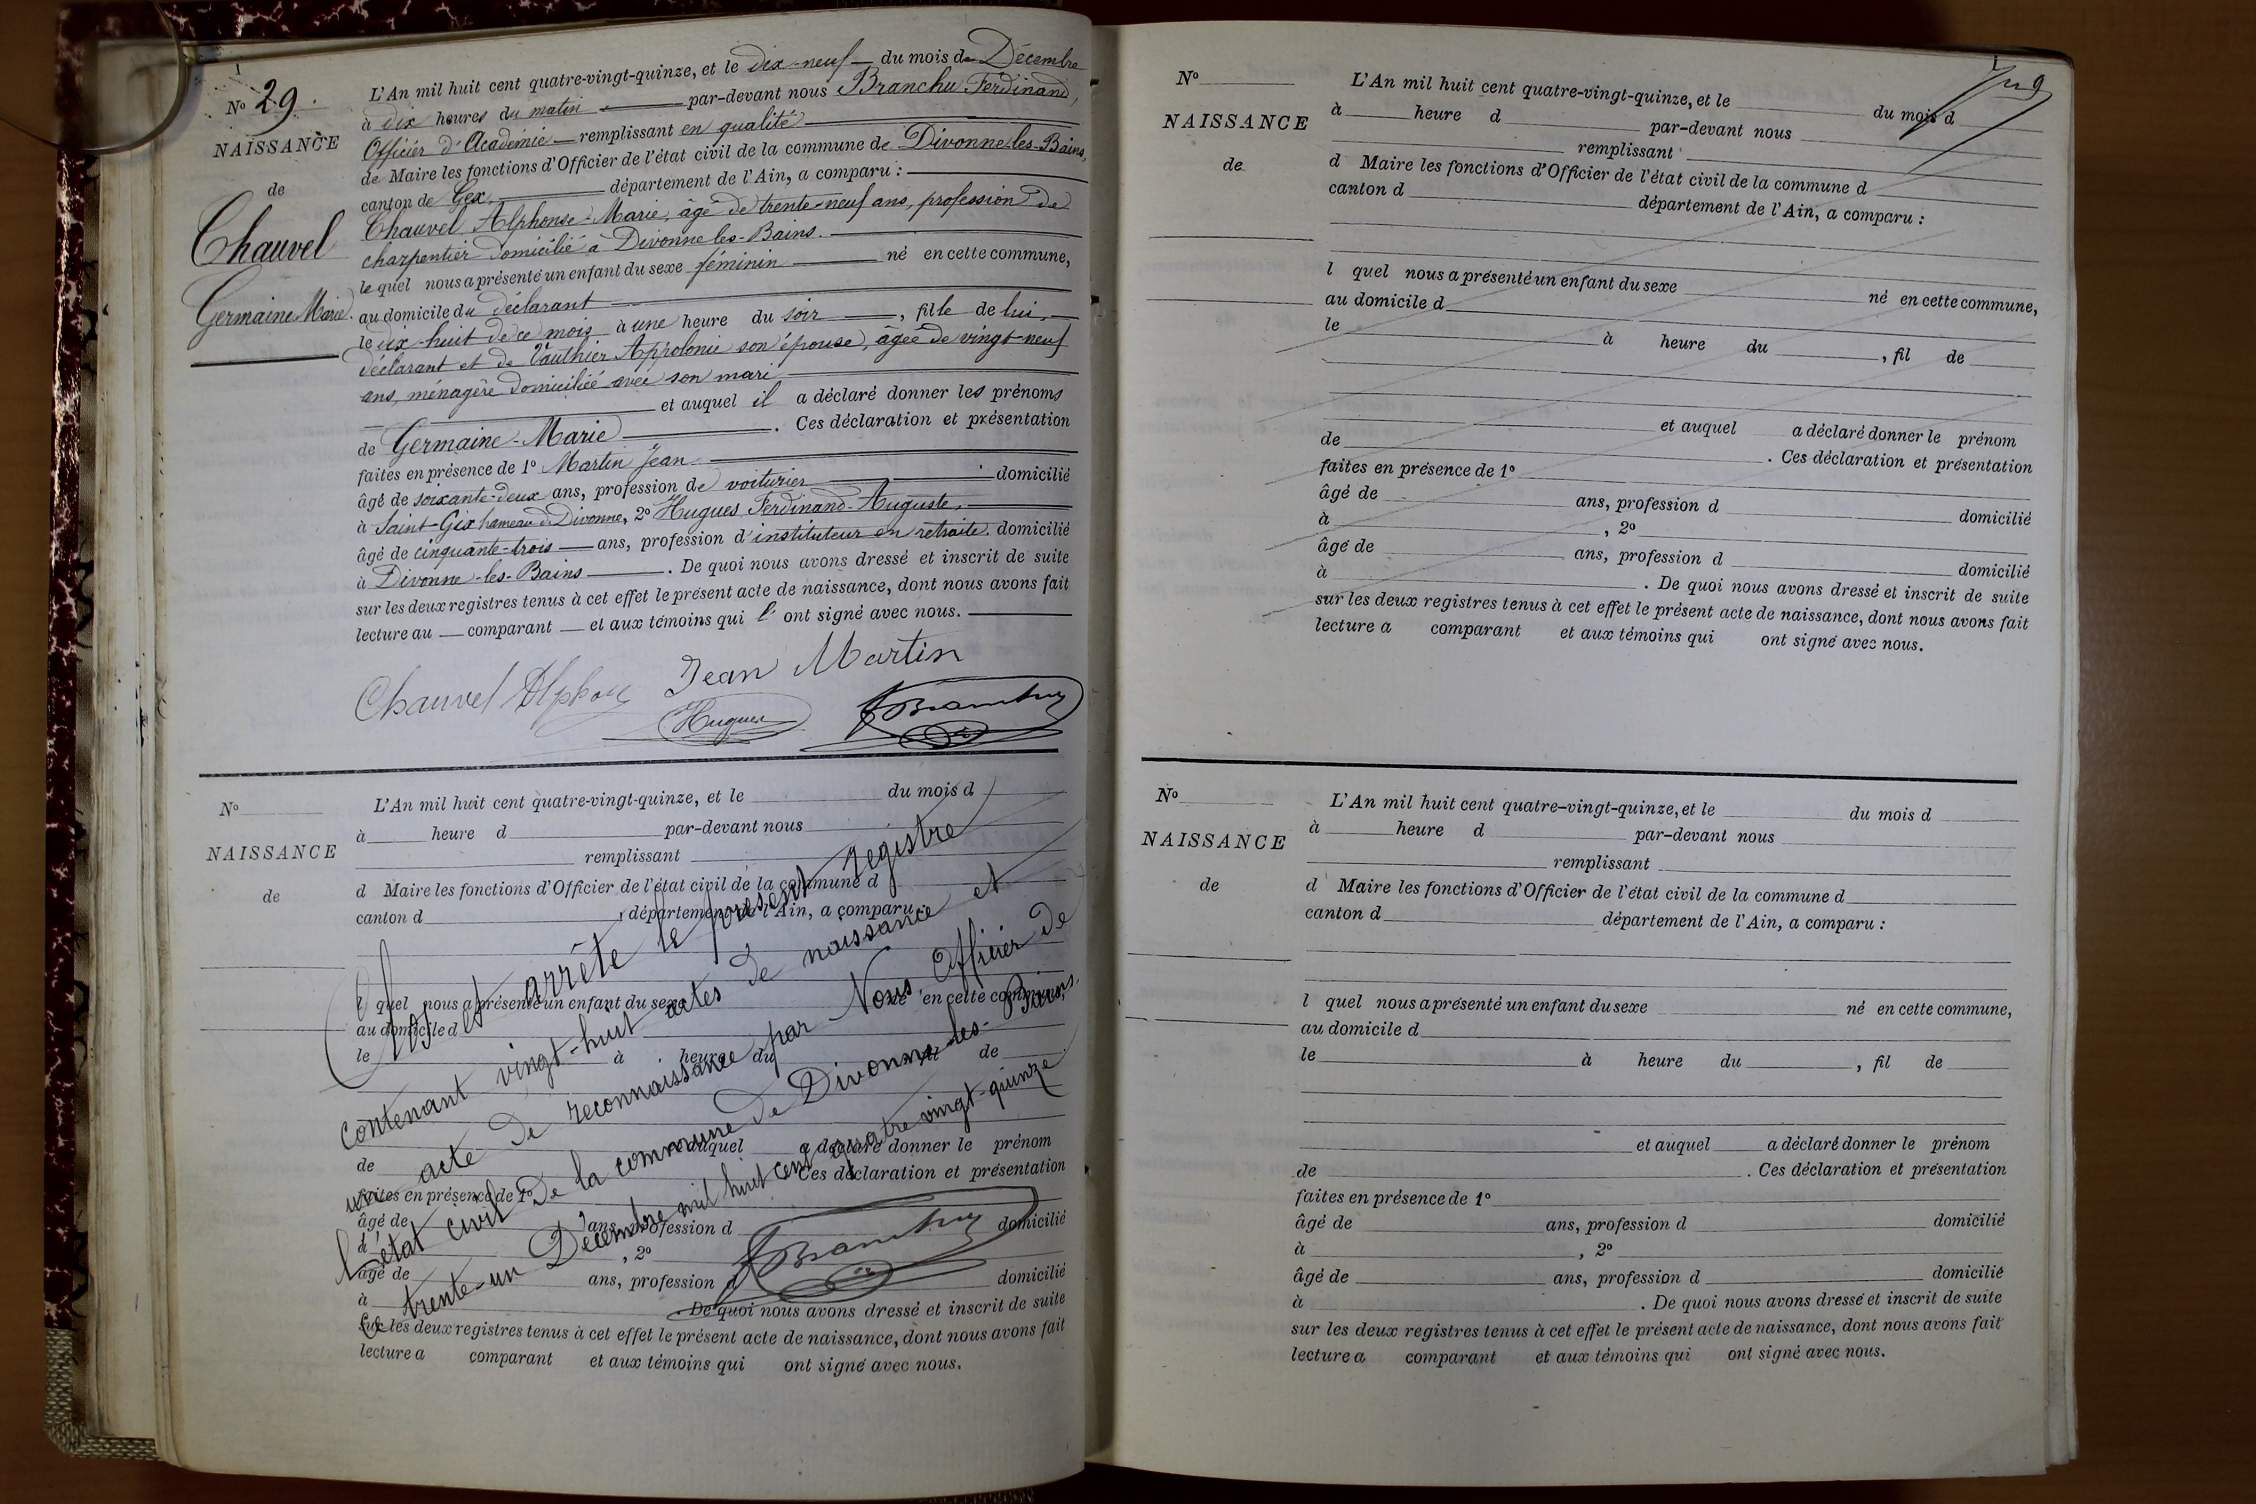 N° 29.
NAISSANCE
de
Chauvel
Germaine Marie.
L'An mil huit cent quatre-vingt-quinze, et le dix-neuf du mois de Décembre
à dix heures du matin par-devant nous Branchu Ferdinand,
Officier d'Académie remplissant en qualité
de Maire les fonctions d'Officier de l'état civil de la commune de Divonne-les-Bains,
canton de Gex, département de l'Ain, a comparu :
Chauvel Alphonse-Marie, âgé de trente-neuf ans, profession de
charpentier domicilié à Divonne-les-Bains.
lequel nous a présenté un enfant du sexe féminin né en cette commune,
au domicile du déclarant
le dix-huit de ce mois à une heure du soir, fille de lui,
déclarant et de Vauthier Appolonie son épouse, âgée de vingt-neuf
ans, ménagère domiciliée avec son mari
et auquel il a déclaré donner les prénoms
de Germaine-Marie. Ces déclaration et présentation
faites en présence de 1° Martin Jean
âgé de soixante-deux ans, profession de voiturier domicilié
à Saint-Gix hameau de Divonne, 2° Hugues Ferdinand-Auguste,
âgé de cinquante-trois ans, profession d'instituteur en retraite domicilié
à Divonne-les-Bains. De quoi nous avons dressé et inscrit de suite
sur les deux registres tenus à cet effet le présent acte de naissance, dont nous avons fait
lecture au comparant et aux témoins qui l'ont signé avec nous.
Chauvel Alphonse Jean Martin
Hugues Branchu
N°
NAISSANCE
de
L'An mil huit cent quatre-vingt-quinze, et le du mois d
à heure d par-devant nous
remplissant
d Maire les fonctions d'Officier de l'état civil de la commune d
canton d, département de l'Ain, a comparu :
l quel nous a présenté un enfant du sexe né en cette commune,
au domicile d
le à heure du, fil de
et auquel a déclaré donner le prénom
de. Ces déclaration et présentation
faites en présence de 1°
âgé de ans, profession d domicilié
à, 2°
âgé de ans, profession d domicilié
à. De quoi nous avons dressé et inscrit de suite
sur les deux registres tenus à cet effet le présent acte de naissance, dont nous avons fait
lecture a comparant et aux témoins qui ont signé avec nous.
Clos et arrêté le présent registre
contenant vingt-huit actes de naissance et
un acte de reconnaissance par Nous, Officier de
l'état civil de la commune de Divonne-les-Bains,
ce trente-un Décembre mil huit cent quatre vingt-quinze
Branchu
N°
NAISSANCE
de
L'An mil huit cent quatre-vingt-quinze, et le du mois d
à heure d par-devant nous
remplissant
d Maire les fonctions d'Officier de l'état civil de la commune d
canton d département de l'Ain, a comparu :
l quel nous a présenté un enfant du sexe né en cette commune,
au domicile d
le à heure du, fil de
et auquel a déclaré donner le prénom
de. Ces déclaration et présentation
faites en présence de 1°
âgé de ans, profession d domicilié
à, 2°
âgé de ans, profession d domicilié
à. De quoi nous avons dressé et inscrit de suite
sur les deux registres tenus à cet effet le présent acte de naissance, dont nous avons fait
lecture a comparant et aux témoins qui ont signé avec nous.
N°
NAISSANCE
de
L'An mil huit cent quatre-vingt-quinze, et le du mois d
à heure d par-devant nous
remplissant
d Maire les fonctions d'Officier de l'état civil de la commune d
canton d département de l'Ain, a comparu :
l quel nous a présenté un enfant du sexe né en cette commune,
au domicile d
le à heure du, fil de
et auquel a déclaré donner le prénom
de. Ces déclaration et présentation
faites en présence de 1°
âgé de ans, profession d domicilié
à, 2°
âgé de ans, profession d domicilié
à. De quoi nous avons dressé et inscrit de suite
sur les deux registres tenus à cet effet le présent acte de naissance, dont nous avons fait
lecture a comparant et aux témoins qui ont signé avec nous.